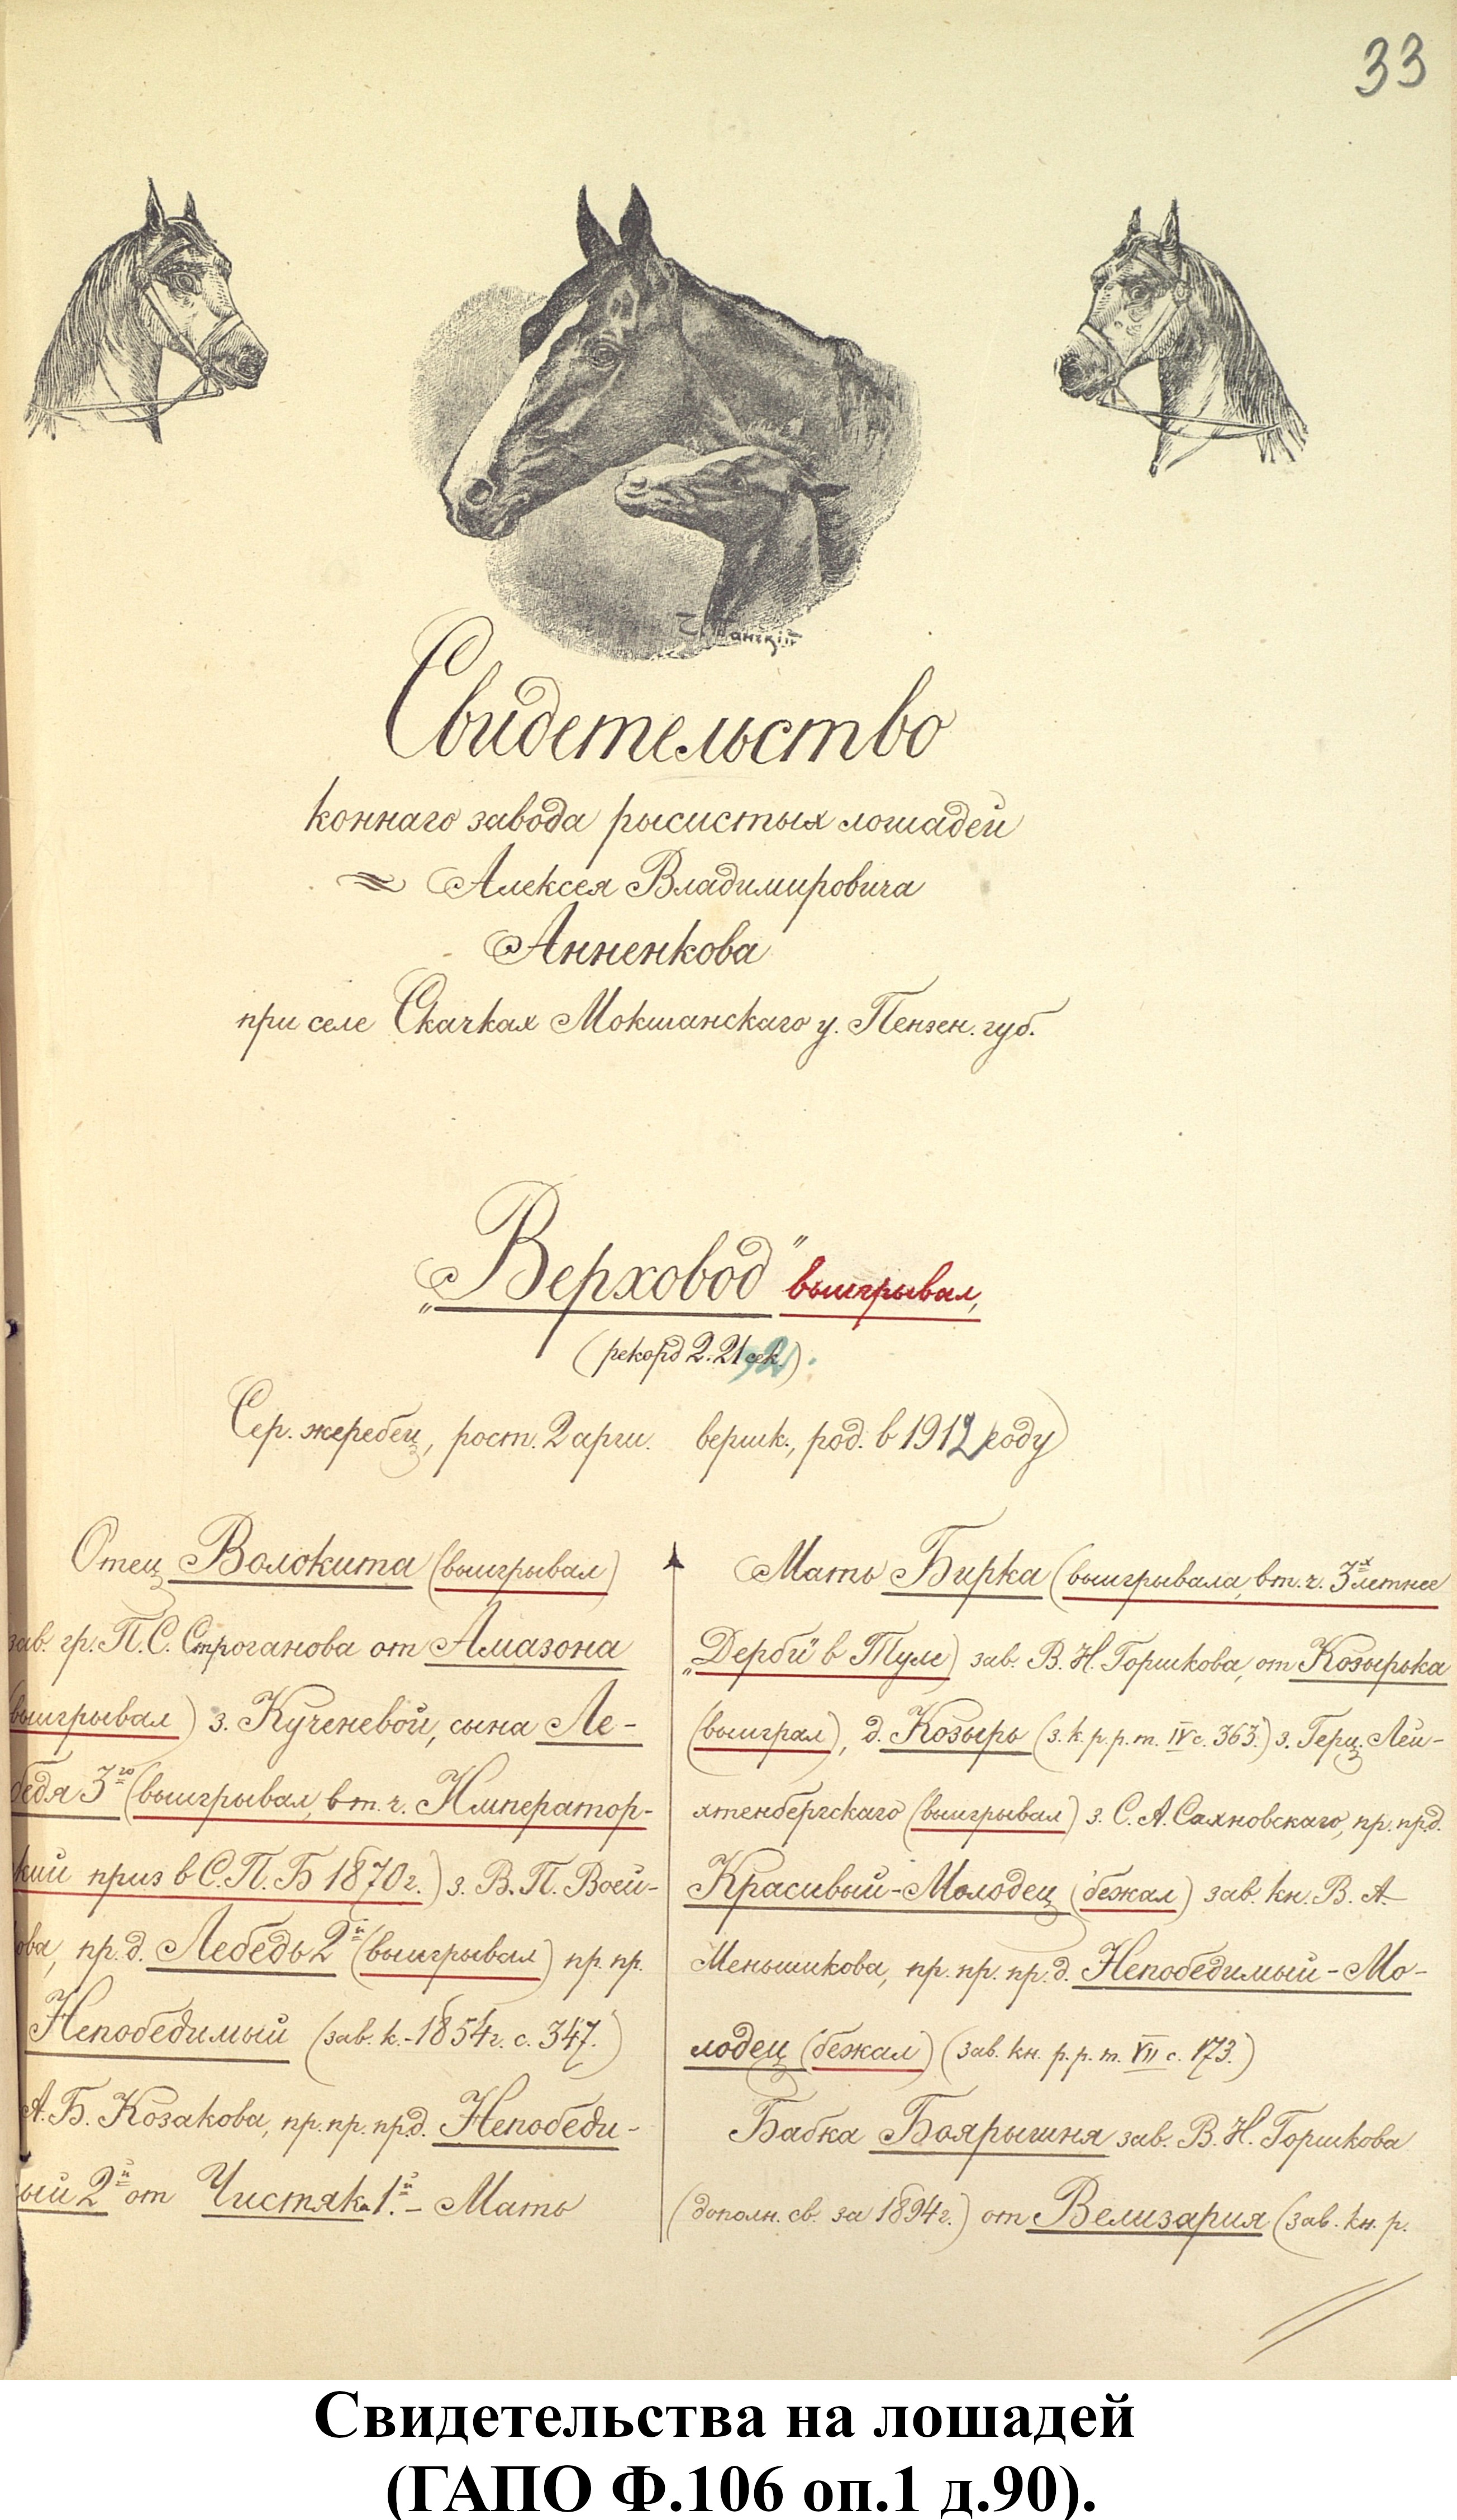 33
Свидетельство
коннаго завода рысистых лошадей
Алексея Владимировича
Анненкова
при селе Скачках Мокшанскаго у. Пензен. губ.
„Верховод" выигрывал,
(рекорд 2.21 сек.)
Сер. жеребец, рост. 2 арш. вершк., род. в 1912 году
Отец Волокита (выигрывал)
зав. гр. П. С. Строганова от Амазона
выигрывал) з. Кученевой, сына Ле-
бедя 3го (выигрывал, в т. ч. Император-
кий приз в С.П.Б 1870 г.) з. В. П. Воей-
ова, пр. д. Лебедь 2й (выигрывал) пр. пр.
Непобедимый (зав. к. - 1854 г. с. 347.)
А. Б. Козакова, пр. пр. пр. д. Непобеди-
ый 2й от Чистяка 1й. - Мать
Мать Бирка (выигрывала, в т. ч. 3х летнее
„Дерби" в Туле) зав. В. Н. Горшкова, от Козырька
(выиграл), д. Козырь (з. к. р. р. т. IV с. 363.) з. Герц. Лей-
хтенбергскаго (выигрывал) з. С. А. Сахновскаго, пр. пр. д.
Красивый-Молодец (бежал) зав. кн. В. А.
Меньшикова, пр. пр. пр. д. Непобедимый-Мо-
лодец (бежал) (зав. кн. р. р. т. VII с. 173.)
Бабка Боярышня зав. В. Н. Горшкова
(дополн. св. за 1894 г.) от Велизария (зав. кн. р.
Свидетельства на лошадей
(ГАПО Ф.106 оп.1 д.90).